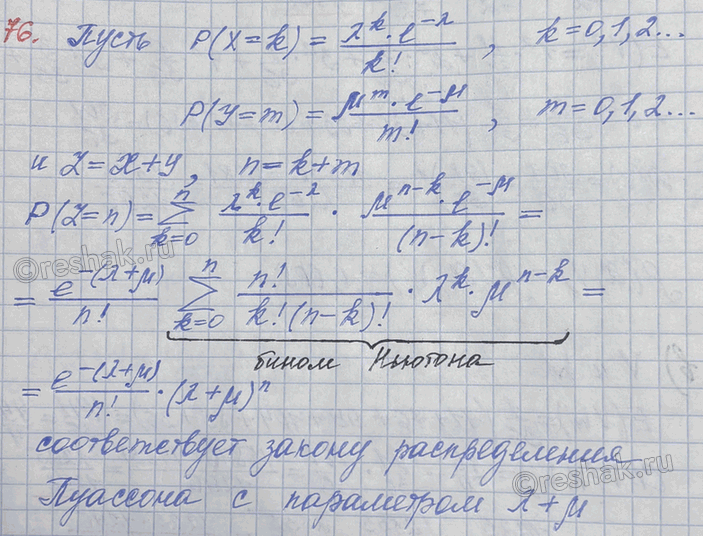 76. Пусть P(X=k) = λ^k · e^-λ / k! , k=0,1,2...
P(Y=m) = μ^m · e^-μ / m! , m=0,1,2...
и Z=X+Y, n=k+m
P(Z=n) = ∑_{k=0}^{n} λ^k · e^-λ / k! · μ^{n-k} · e^-μ / (n-k)! =
= e^-(λ+μ) / n! ∑_{k=0}^{n} n! / k!(n-k)! · λ^k · μ^{n-k} =
бином Ньютона
= e^-(λ+μ) / n! · (λ+μ)^n
соответствует закону распределения
Пуассона с параметром λ+μ
©reshak.ru
©reshak.ru
©reshak.ru
©reshak.ru